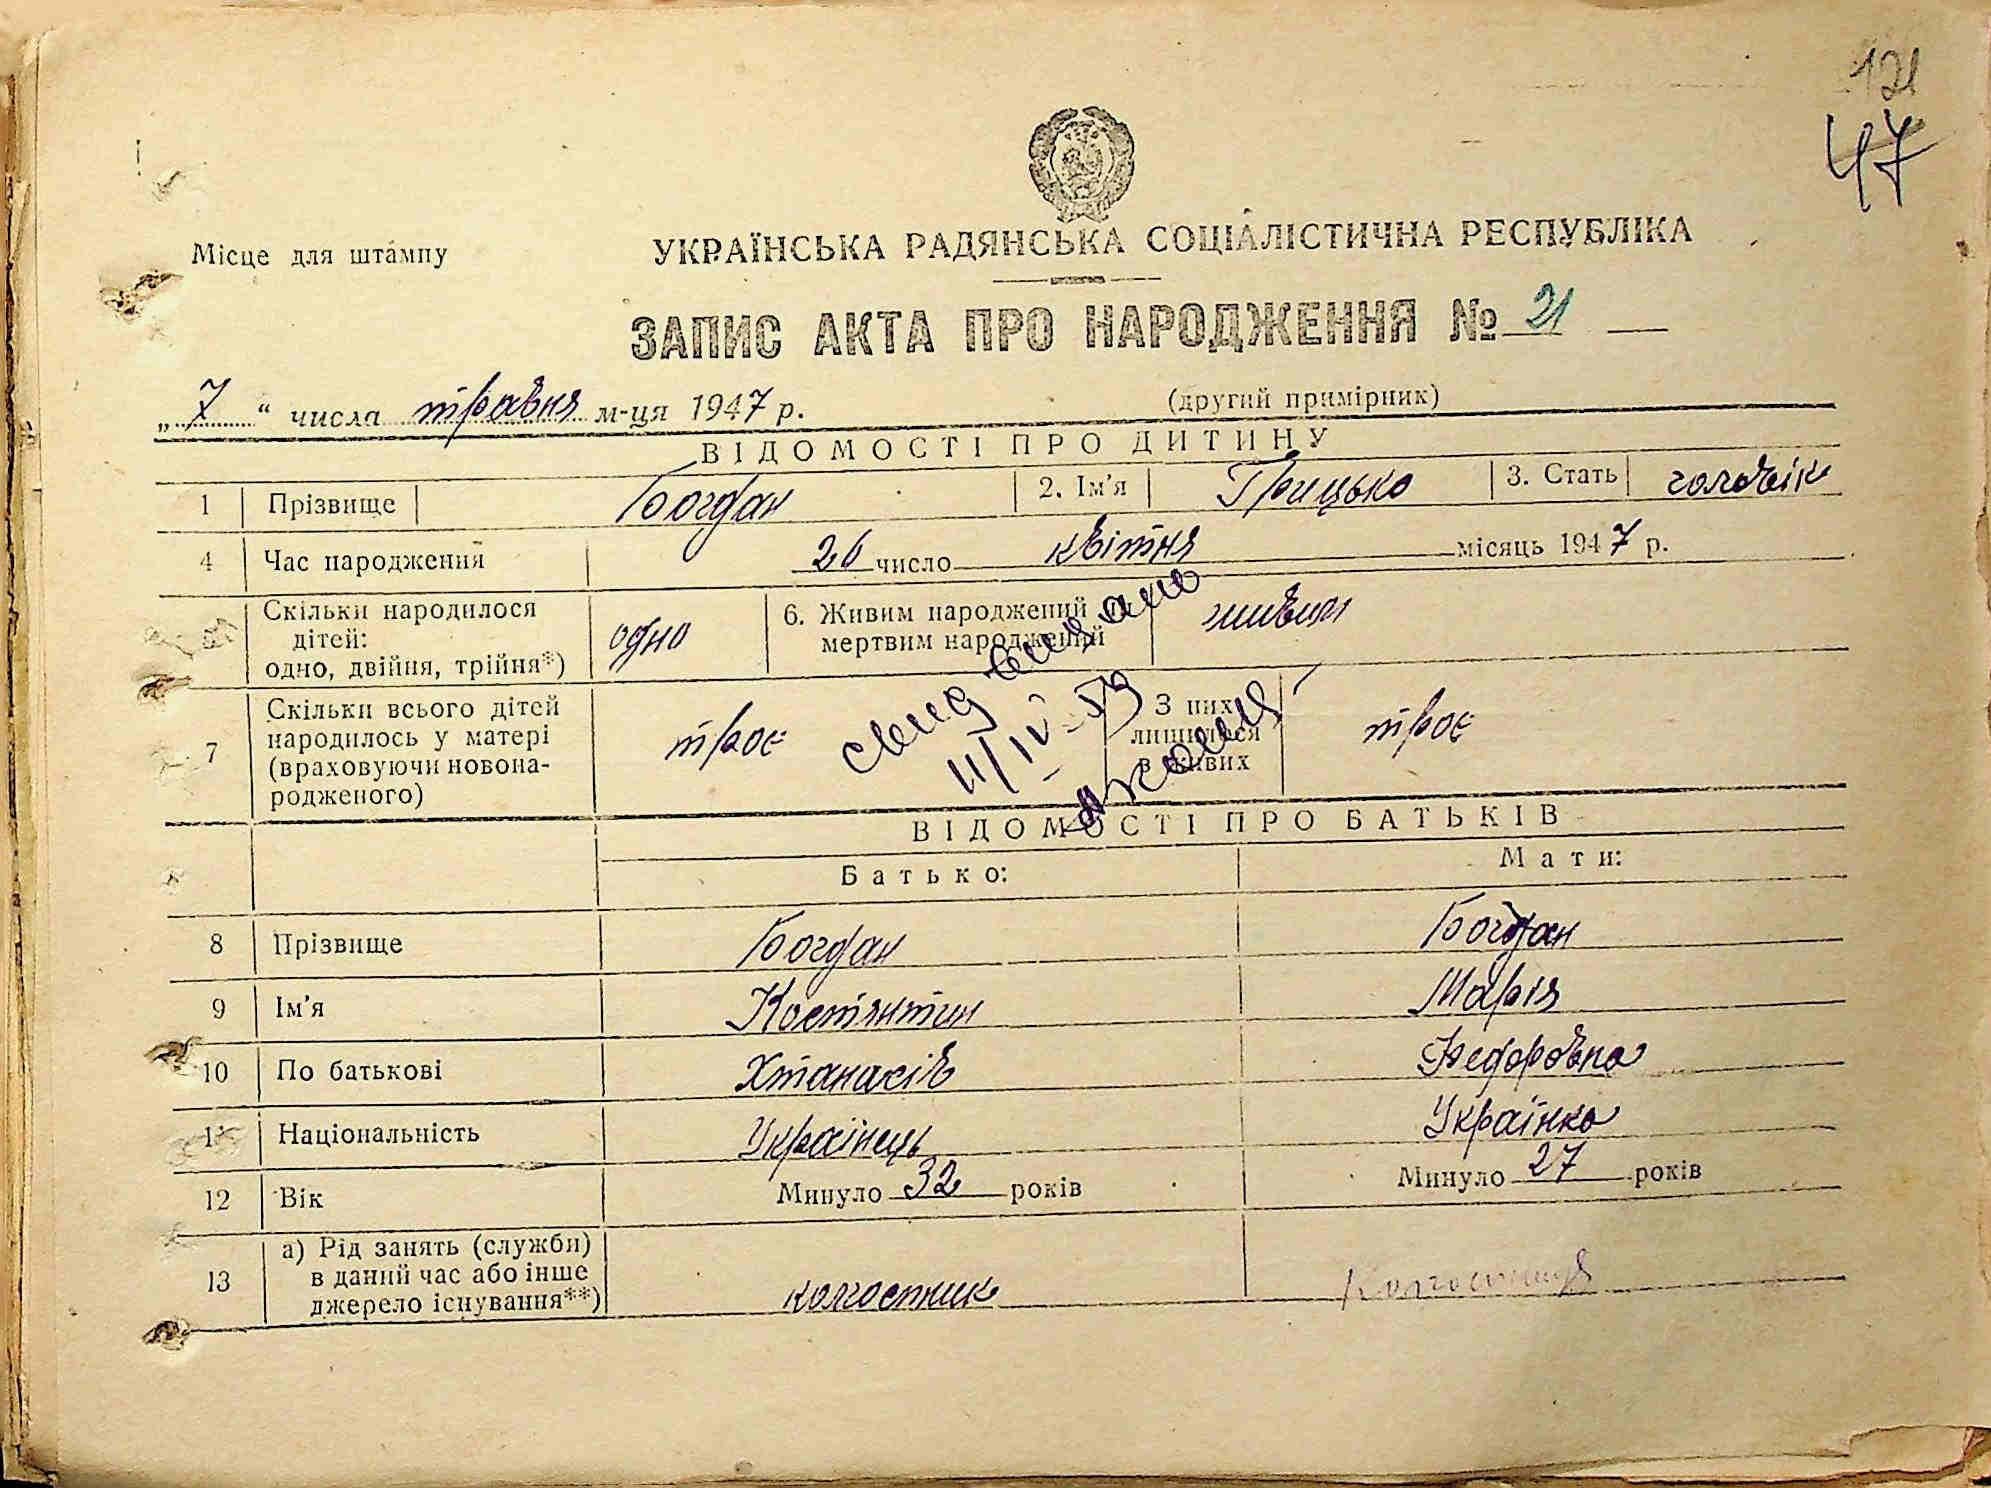 121
47
Місце для штампу
УКРАЇНСЬКА РАДЯНСЬКА СОЦІАЛІСТИЧНА РЕСПУБЛІКА
ЗАПИС АКТА ПРО НАРОДЖЕННЯ № 21
„7“ числа травня м-ця 1947 р.
(другий примірник)
ВІДОМОСТІ ПРО ДИТИНУ
1 Прізвище Богдан 2. Ім'я Грицько 3. Стать чоловік
4 Час народження 26 число квітня місяць 1947 р.
Скільки народилося
дітей:
одно, двійня, трійня*)
одно
6. Живим народжений чи
мертвим народжений
живим
7 Скільки всього дітей
народилось у матері
(враховуючи новона-
родженого)
троє
З них
лишилося
в живих
троє
свид выдано
11/IV-59
ВІДОМОСТІ ПРО БАТЬКІВ
Батько: Мати:
8 Прізвище Богдан Богдан
9 Ім'я Костянтин Марія
10 По батькові Хтанасів Федорівна
11 Національність Українець Українка
12 Вік Минуло 32 років Минуло 27 років
13 а) Рід занять (служби)
в даний час або інше
джерело існування**)
колгостник Колгостниця